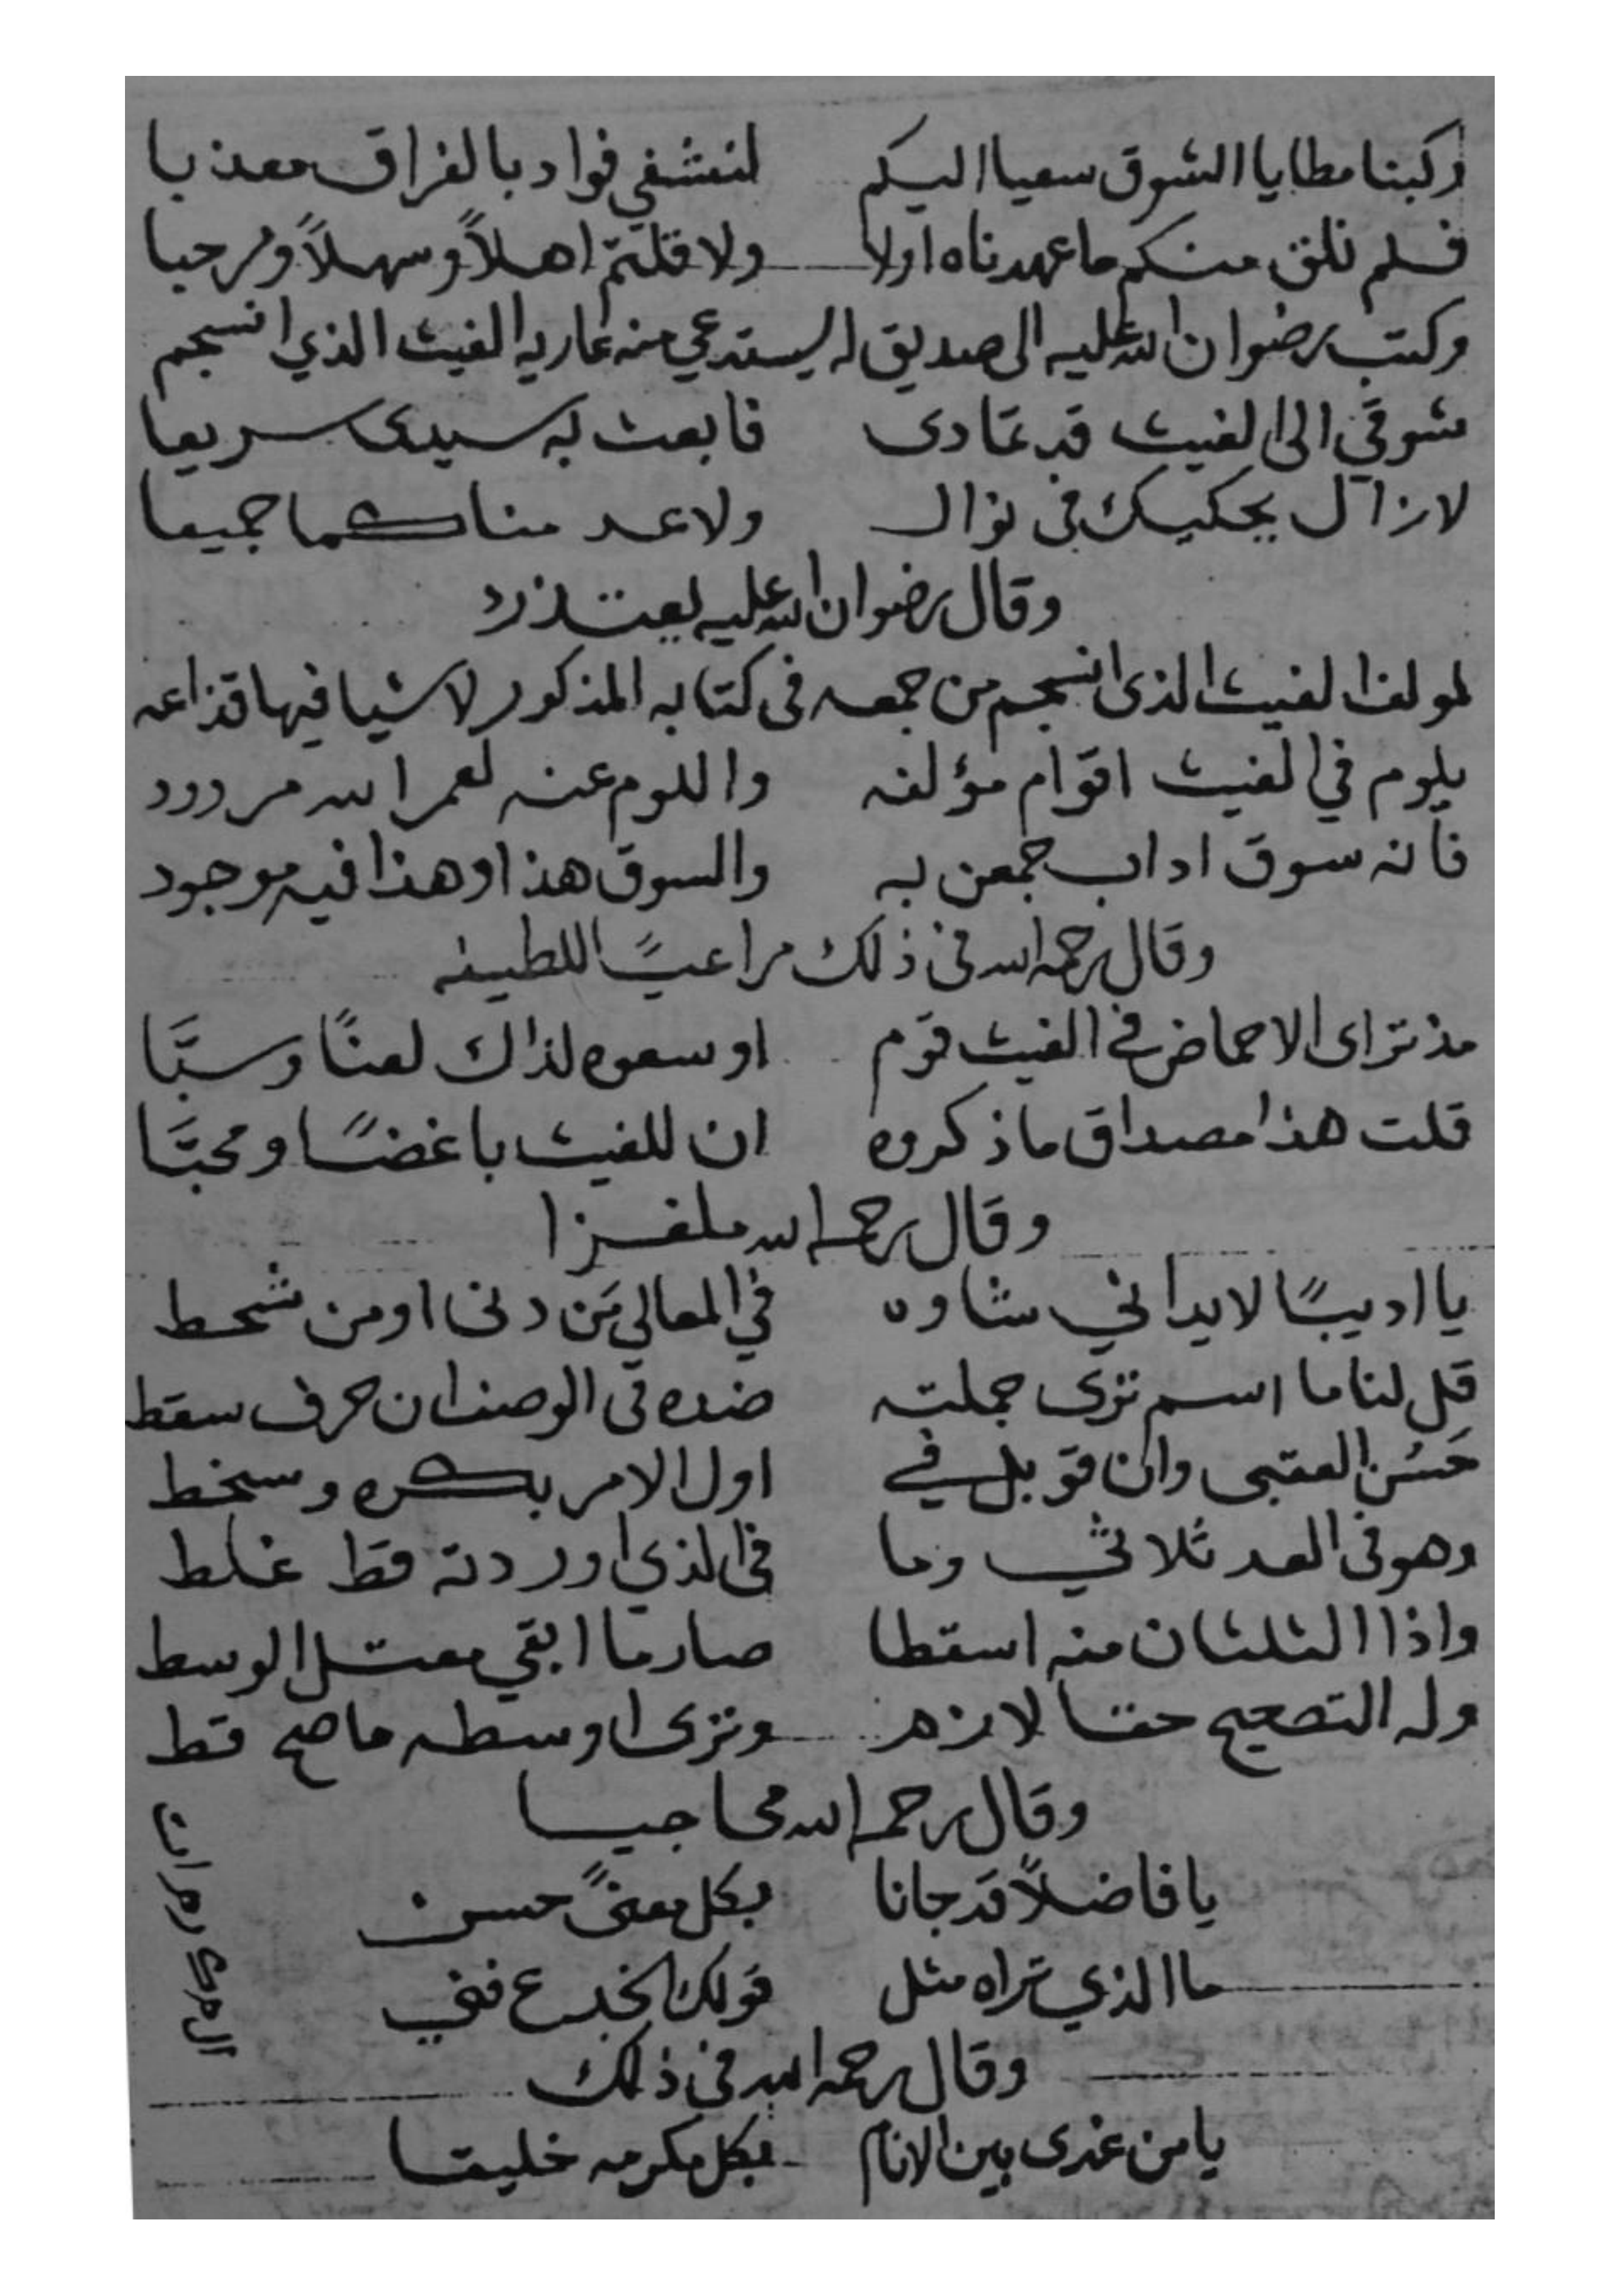 ركبنا مطايا الشوق سعيا اليكم لنشفي فواد بالفراق معذبا
فلم نلق منكم ما عهدناه اولا ولا قلتم اهلاً وسهلاً ومرحبا
وكتب رضوان الله عليه الى صديق له يستدعي منه عاريه الغيث الذي انسجم
شوقي الى الغيث قد تمادى فابعث به سيدى سريعا
لا زال يحكيك فى نوال ولا عدمناكما جميعا
وقال رضوان الله عليه يعتذر
لمولف الغيث الذى انسجم من جمعه فى كتابه المذكور لاشيا فيها قذاعه
يلوم في الغيث اقوام مؤلفه واللوم عنه لعمر الله مردود
فانه سوق اداب جمعن به والسوق هذا وهذا فيه موجود
وقال رحمه الله فى ذلك مراعيًا للطيفه
مذ تراى الاحماض في الغيث قوم اوسعوه لذاك لعنًا وسبَّا
قلت هذا مصداق ما ذكروه ان للغيث باغضًا ومحبَّا
وقال رحمه الله ملغزا
يا اديبًا لا يداني شاوه في المعالي مَن دنى او من شحط
قل لنا ما اسم ترى جملته ضده فى الوصف ان حرف سقط
حَسُن العقبى وان قوبل في اول الامر بكره وسخط
وهو فى العد ثلاثي وما فى الذي اوردته قط غلط
واذا الثلثان منه اسقطا صار ما ابقي معتل الوسط
وله التصحيح حقا لازم وترى اوسطه ما صح قط
وقال رحمه الله محاجيا
يا فاضلاً قد جانا بكل معنىً حسن
ما الذي تراه مثل قولك اخدع فني
وقال رحمه الله فى ذلك
يا من غدى بين الانام بكل مكرمه خليقا